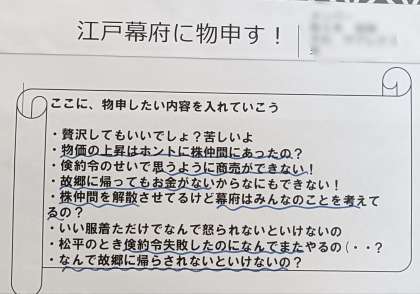 江戸幕府に物申す！
ここに、物申したい内容を入れていこう
・贅沢してもいいでしょ？苦しいよ
・物価の上昇はホントに株仲間にあったの？
・倹約令のせいで思うように商売ができない！
・故郷に帰ってもお金がないからなにもできない！
・株仲間を解散させてるけど幕府はみんなのことを考えて
るの？
・いい服着ただけでなんで怒られないといけないの
・松平のとき倹約令失敗したのになんでまたやるの（・・？
・なんで故郷に帰らされないといけないの？